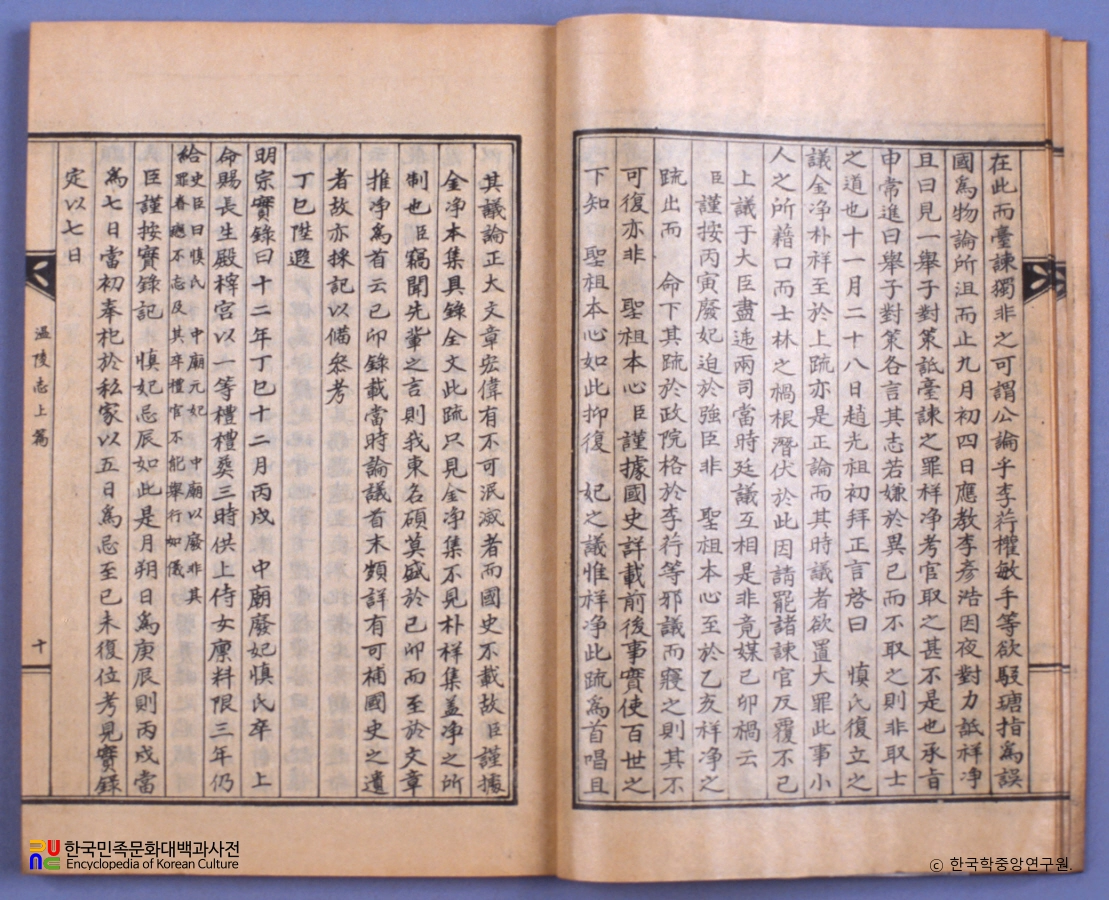 在此而臺諫獨非之可謂公論乎李荇權敏手等欲駁瑭指爲誤
國爲物論所沮而止九月初四日應教李彦浩因夜對力詆祥净
且曰見一舉子對策詆臺諫之罪祥净考官取之甚不是也承旨
申常進曰舉子對策各言其志若嫌於異己而不取之則非取士
之道也十一月二十八日趙光祖初拜正言啓曰 愼氏復立之
議金净朴祥至於上疏亦是正論而其時議者欲置大罪此事小
人之所藉口而士林之禍根潛伏於此因請罷諸諫官反覆不已
上議于大臣盡遞兩司當時廷議互相是非竟媒己卯禍云
臣謹按丙寅廢妃迫於強臣非 聖祖本心至於乙亥祥净之
疏出而 命下其疏於政院格於李荇等邪議而寢之則其不
可復亦非 聖祖本心臣謹據國史詳載前後事實使百世之
下知 聖祖本心如此抑復 妃之議惟祥净此疏爲首唱且
其議論正大文章宏偉有不可泯滅者而國史不載故臣謹據
金净本集具錄全文此疏只見金净集不見朴祥集盖净之所
制也臣竊聞先輩之言則我東名碩莫盛於己卯而至於文章
推净爲首云己卯錄載當時論議首末頗詳有可補國史之遺
者故亦採記以備叅考
丁巳陞遐
明宗實錄曰十二年丁巳十二月丙戌 中廟廢妃愼氏卒 上
命賜長生殿梓宮以一等禮禮葬三時供上侍女廩料限三年仍
給史臣曰愼氏 中廟元妃 中廟以廢非其
罪眷戀不忘及其卒禮官不能舉行如儀
臣謹按實錄記 愼妃忌辰如此是月朔日爲庚辰則丙戌當
爲七日當初奉祀於私家以五日爲忌至己未復位考見實錄
定以七日
溫陵志上篇
十
한국민족문화대백과사전
Encyclopedia of Korean Culture
© 한국학중앙연구원.